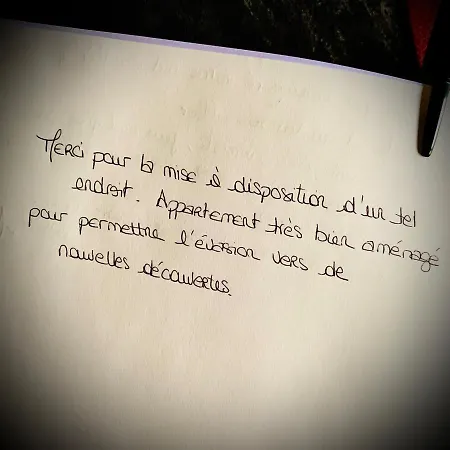 Merci pour la mise à disposition d'un tel
endroit. Appartement très bien aménagé
pour permettre l'évasion vers de
nouvelles découvertes.